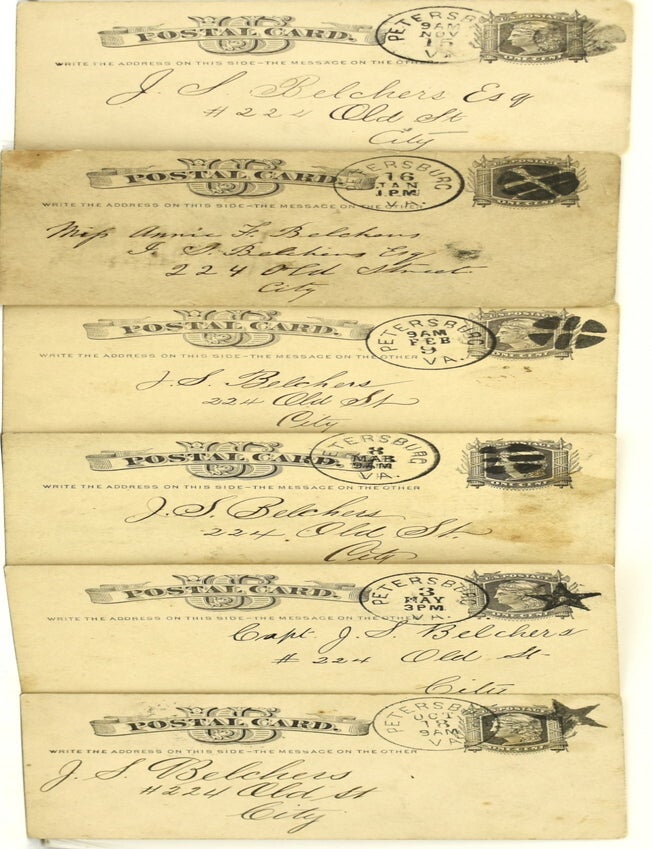 POSTAL CARD.
PETERSBURG
9 AM
NOV
VA.
ONE CENT
WRITE THE ADDRESS ON THIS SIDE—THE MESSAGE ON THE OTHER
J. S. Belchers Esq
# 224 Old St
City
POSTAL CARD.
PETERSBURG
16
JAN
1 P.M.
VA.
ONE CENT
WRITE THE ADDRESS ON THIS SIDE—THE MESSAGE ON THE OTHER
Miss Annie F. Belchers
J. S. Belchers Esq
224 Old Street
City
POSTAL CARD.
PETERSBURG
9 AM
FEB
9
VA.
ONE CENT
WRITE THE ADDRESS ON THIS SIDE—THE MESSAGE ON THE OTHER
J. S. Belchers
224 Old St
City
POSTAL CARD.
PETERSBURG
8
MAR
9 AM
VA.
ONE CENT
WRITE THE ADDRESS ON THIS SIDE—THE MESSAGE ON THE OTHER
J. S. Belchers
224. Old St.
City
POSTAL CARD.
PETERSBURG
3
MAY
3 P.M.
VA.
POSTAGE
ONE CENT
WRITE THE ADDRESS ON THIS SIDE—THE MESSAGE ON THE OTHER
Capt J. S. Belchers
# 224 Old St
City
POSTAL CARD.
PETERSBURG
OCT
18
9 AM
VA.
ONE CENT
WRITE THE ADDRESS ON THIS SIDE—THE MESSAGE ON THE OTHER
J. S. Belchers
# 224 Old St
City